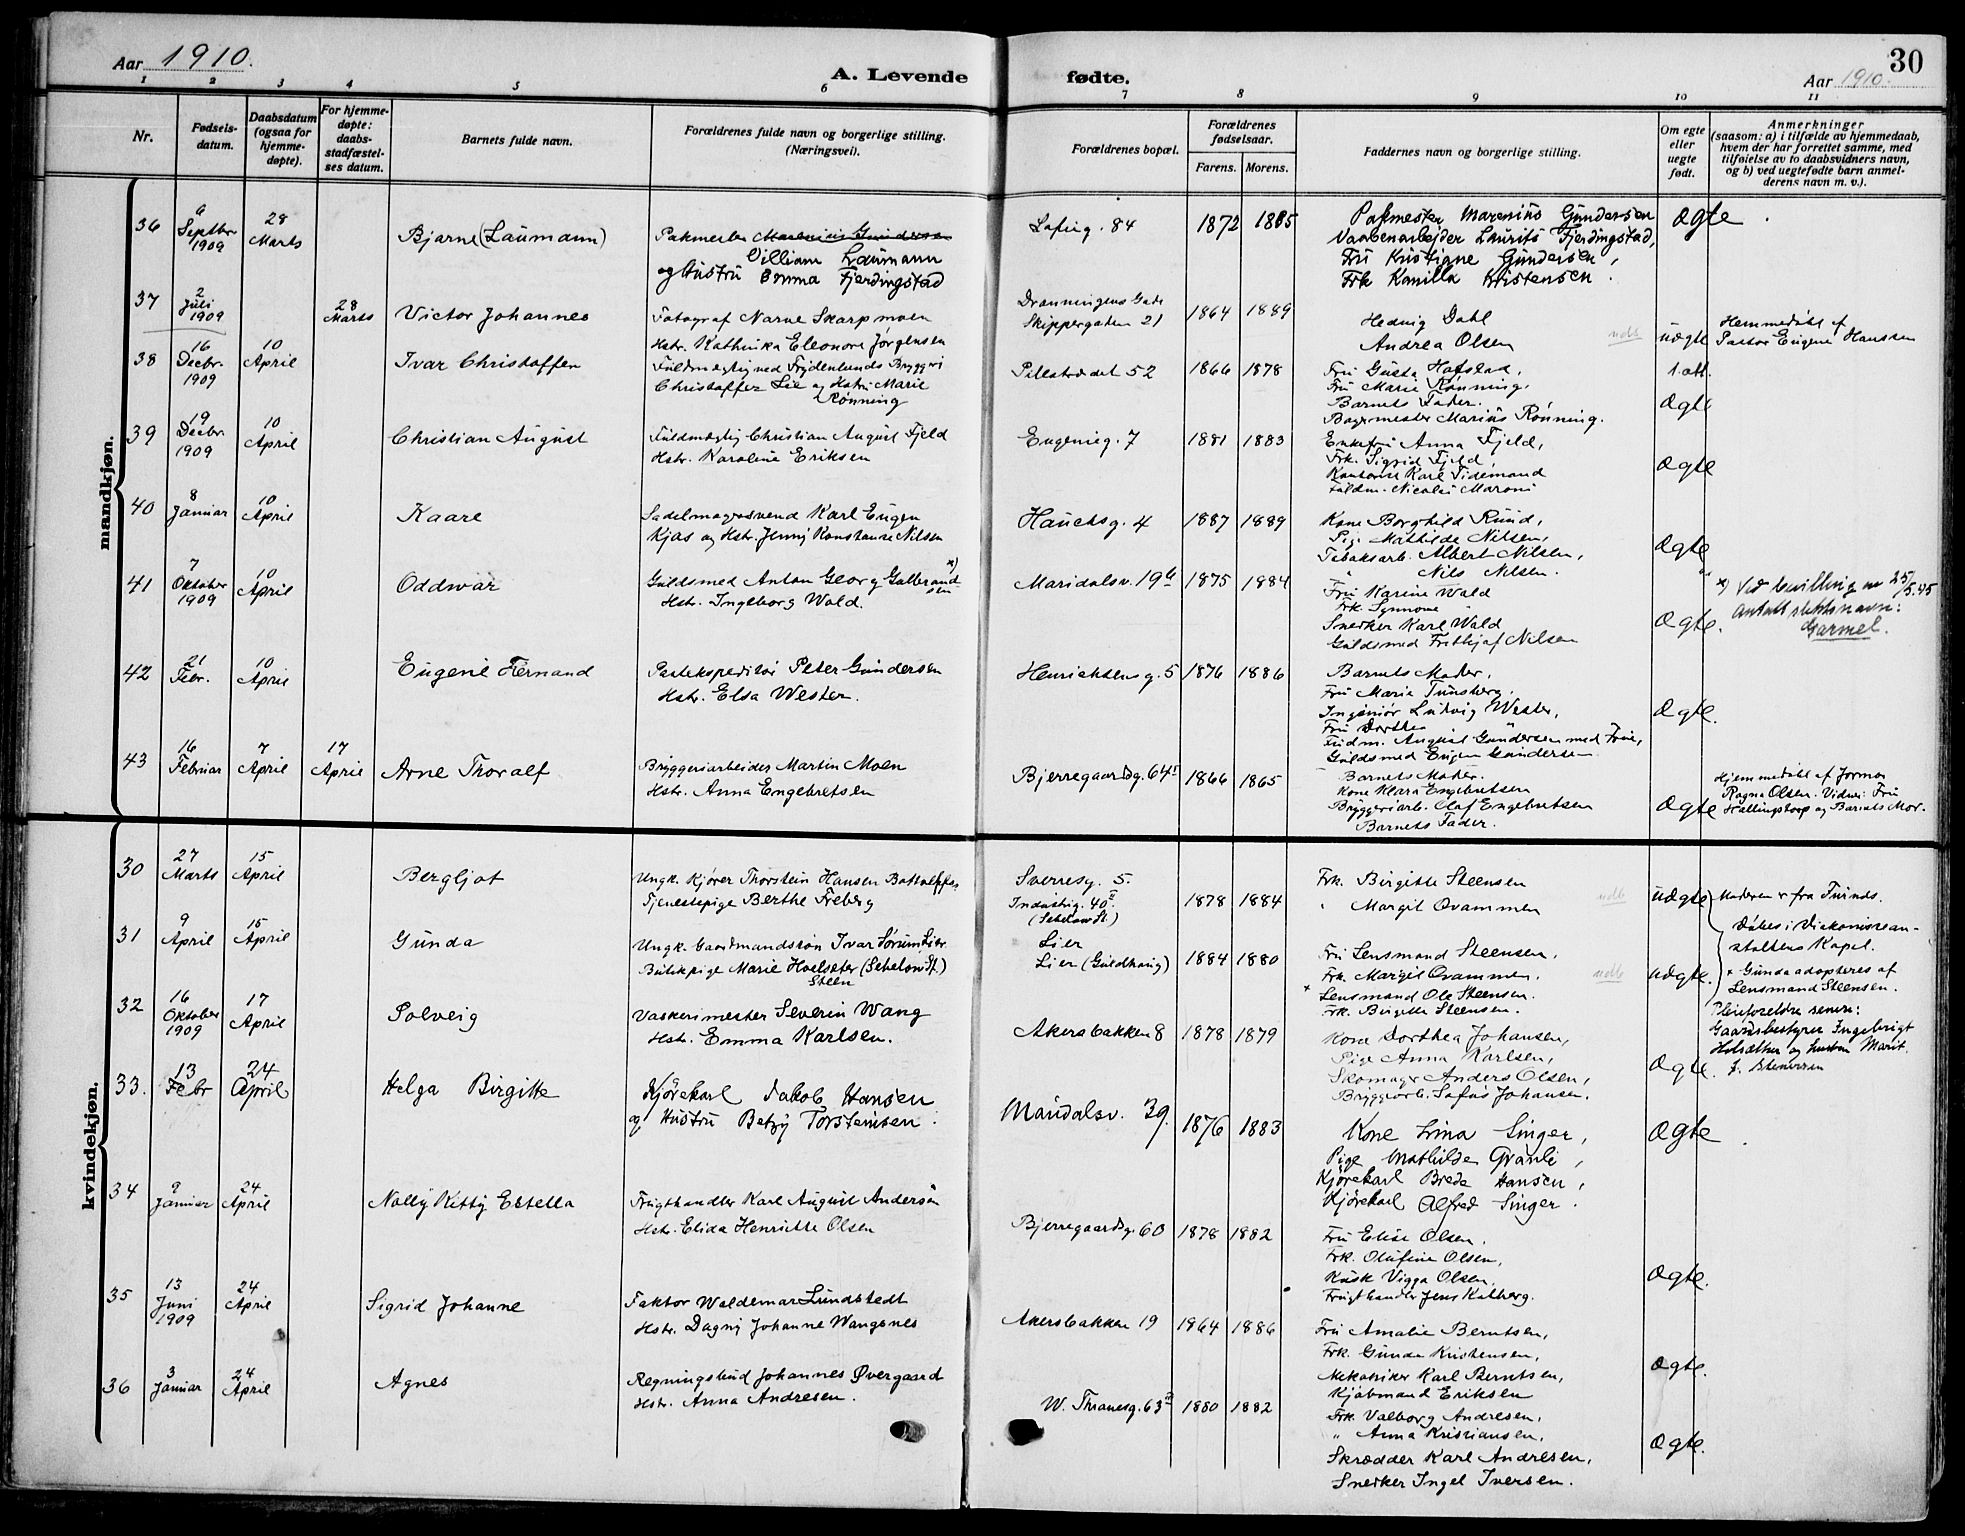 Aar 1910.
A. Levende fødte.
30
Aar 1910.
1 2 3 4 5 6 7 8 9 10 11
Nr.
Fødsels-
datum.
Daabsdatum
(ogsaa for
hjemme-
døpte).
For hjemme-
døpte:
daabs-
stadfæstel-
ses datum.
Barnets fulde navn.
Forældrenes fulde navn og borgerlige stilling.
(Næringsvei).
Forældrenes bopæl.
Forældrenes
fødselsaar.
Farens. Morens.
Faddernes navn og borgerlige stilling.
Om egte
eller
uegte
født.
Anmerkninger
(saasom: a) i tilfælde av hjemmedaab,
hvem der har forrettet samme, med
tilføielse av to daabsvidners navn,
og b) ved uegtefødte barn anmel-
derens navn m. v.).
mandkjøn.
36
6 Septbr 1909
28 Marts
Bjarne (Laumann)
Pakmester Marenius Gundersen
William Laumann
og Hustru Emma Fjerdingstad
Lofieg. 84
1872 1885
Pakmester Marenius Gundersen
Vaabenarbejder Laurits Fjerdingstad,
Fru Kristiane Gundersen,
Frk Kamilla Kristensen.
Ægte
37
2 Juli 1909
28 Marts
Victor Johannes
Fotograf Narve Skarpmoen
Hstr. Kathinka Eleonora Jørgensen
Dronningens Gade
Skippergaten 21
1864 1889
Hedvig Dahl
Andrea Olsen
udb
uægte
Hemmedøbt af
Pastor Eugene Hanssen
38
16 Decbr. 1909
10 April
Ivar Christoffer
Fuldmægtig ved Frydenlunds Bryggeri
Christoffer Lie og Hstr. Marie
Rønning
Pilestrædet 52
1866 1878
Fru Gusta Hafstad,
Fru Marie Rønning,
Barnets Fader.
Bagermester Marius Rønning.
1 att.
Ægte
39
19 Decbr. 1909
10 April
Christian August
Fuldmægtig Christian August Fjeld
Hstr. Karoline Eriksen
Eugenieg. 7
1881 1883
Enkefru Anna Fjeld,
Frk. Sigrid Fjeld
Kontorist Karl Tidemand
Fuldm. Nicolai Maroni
Ægte
40
8 Januar
10 April
Kaare
Sadelmagersvend Karl Eugen
Kjos og Hstr. Jenny Konstanse Nilsen
Hauchsg. 4
1887 1889
Kone Borghild Ruud,
Pig. Mathilde Nilsen,
Tobaksarb. Albert Nilsen,
" Nils Nilsen.
Ægte
41
7 Oktober 1909
10 April
Oddwar
Guldsmed Anton Georg Gulbrand-
sen x)
Hstr. Ingeborg Wold.
Maridalsv. 19
1875 1884
Fru Karine Wold
Frk. Synnøve "
Snedker Karl Wold
Guldsmed Frithjof Nilsen
Ægte.
x) Ved bevilling av 25/5.45
antatt slektsnavn:
Garmel.
42
21 Febr.
10 April
Eugene Fernand
Postekspeditør Peter Gundersen
Hstr. Elsa Wester.
Henrichsens g. 5
1876 1886
Barnets Moder,
Fru Marie Tunsberg,
Ingeniør Ludvig Wester,
Fru Dorthea
Fuldm. August Gundersen med Frue,
Guldsmed Eugen Gundersen
Ægte.
43
16 Februar
7 April
17 April
Arne Thoralf
Bryggeriarbeider Martin Moen
Hstr. Anna Engebretsen
Bjerregaardsg. 64
1866 1865
Barnets Moder.
Kone Klara Engebretsen
Bryggeriarb. Olaf Engebretsen
Barnets Fader.
Ægte
Hjemmedøbt af Jormor
Ragna Olsen. Vidner: Fru
Hallingstorp og Barnets Mor.
kvindekjøn.
30
27 Marts
15 April
Bergljot
Ungk. Kjører Thorstein Hansen
Tjenestepige Berthe Freberg
Sverresg. 5.
Industrig. 40
(Schelow St.)
1878 1884
Frk. Birgitte Steensen
" Margit Ovammen
udb
uægte
Moderen er fra Furnds.
31
9 April
15 April
Gunda
Ungk. Gaardmandssøn Ivar Sørum Lier
Butikpige Marie Hoelsæter (Schelow St.)
Steen
Lier
Lier (Guldhaug)
1884 1880
Fru Lensmand Steensen,
Frk. Margit Ovammen,
x Lensmand Ole Steensen.
Frk. Birgitte Steensen.
udb
uægte.
Døbes i Diakonissean-
staltens Kapel.
x Gunda adopteres af
Lensmand Steensen.
Pleiforeldre senere:
Gaardsbestyrer Ingebrigt
Holsæther og hustru Marit
J. Stenersen
32
16 Oktober 1909
17 April
Solveig
Vaskerimester Severin Wang
Hstr. Emma Karlsen.
Akersbakken 8
1878 1879
Kone Dorthea Johansen,
Pige Anna Karlsen,
Skomager Anders Olsen,
Bryggeriarb. Sofus Johansen.
Ægte.
33.
13 Febr
24 April
Helga Birgitte
Kjørekarl Jakob Hansen
og Hustru Betzy Torsteinsen.
Maridalsv. 39.
1876 1883
Kone Lina Singer,
Pige Mathilde Granli,
Kjørekarl Brede Hansen,
Kjørekarl Alfred Singer.
Ægte
34
9 Januar
24 April
Nally Kitty Estella
Frugthandler Karl August Andersen
Hstr. Elida Henriette Olsen
Bjerregaardsg. 60
1878 1882
Fru Elise Olsen.
Frk. Olufine Olsen,
Kusk Vigga Olsen,
Frugthandler Jens Kalberg.
Ægte.
35
13 Juni 1909
24 April
Sigrid Johanne
Faktor Waldemar Lundstedt
Hstr. Dagny Johanne Wangsnes
Akersbakken 19
1864 1886
Fru Amalie Berntsen,
Frk. Gunda Kristensen,
Mekaniker Karl Berntsen,
Kjøbmand Eriksen
Ægte.
36
3 Januar
24 April
Agnes
Regningsbud Johannes Øvergaard
Hstr. Anna Andresen.
W. Thranesg. 63
1880 1882
Frk. Valborg Andresen,
" Anna Kristiansen,
Skrædder Karl Andresen,
Snedker Ingel Iversen.
Ægte.